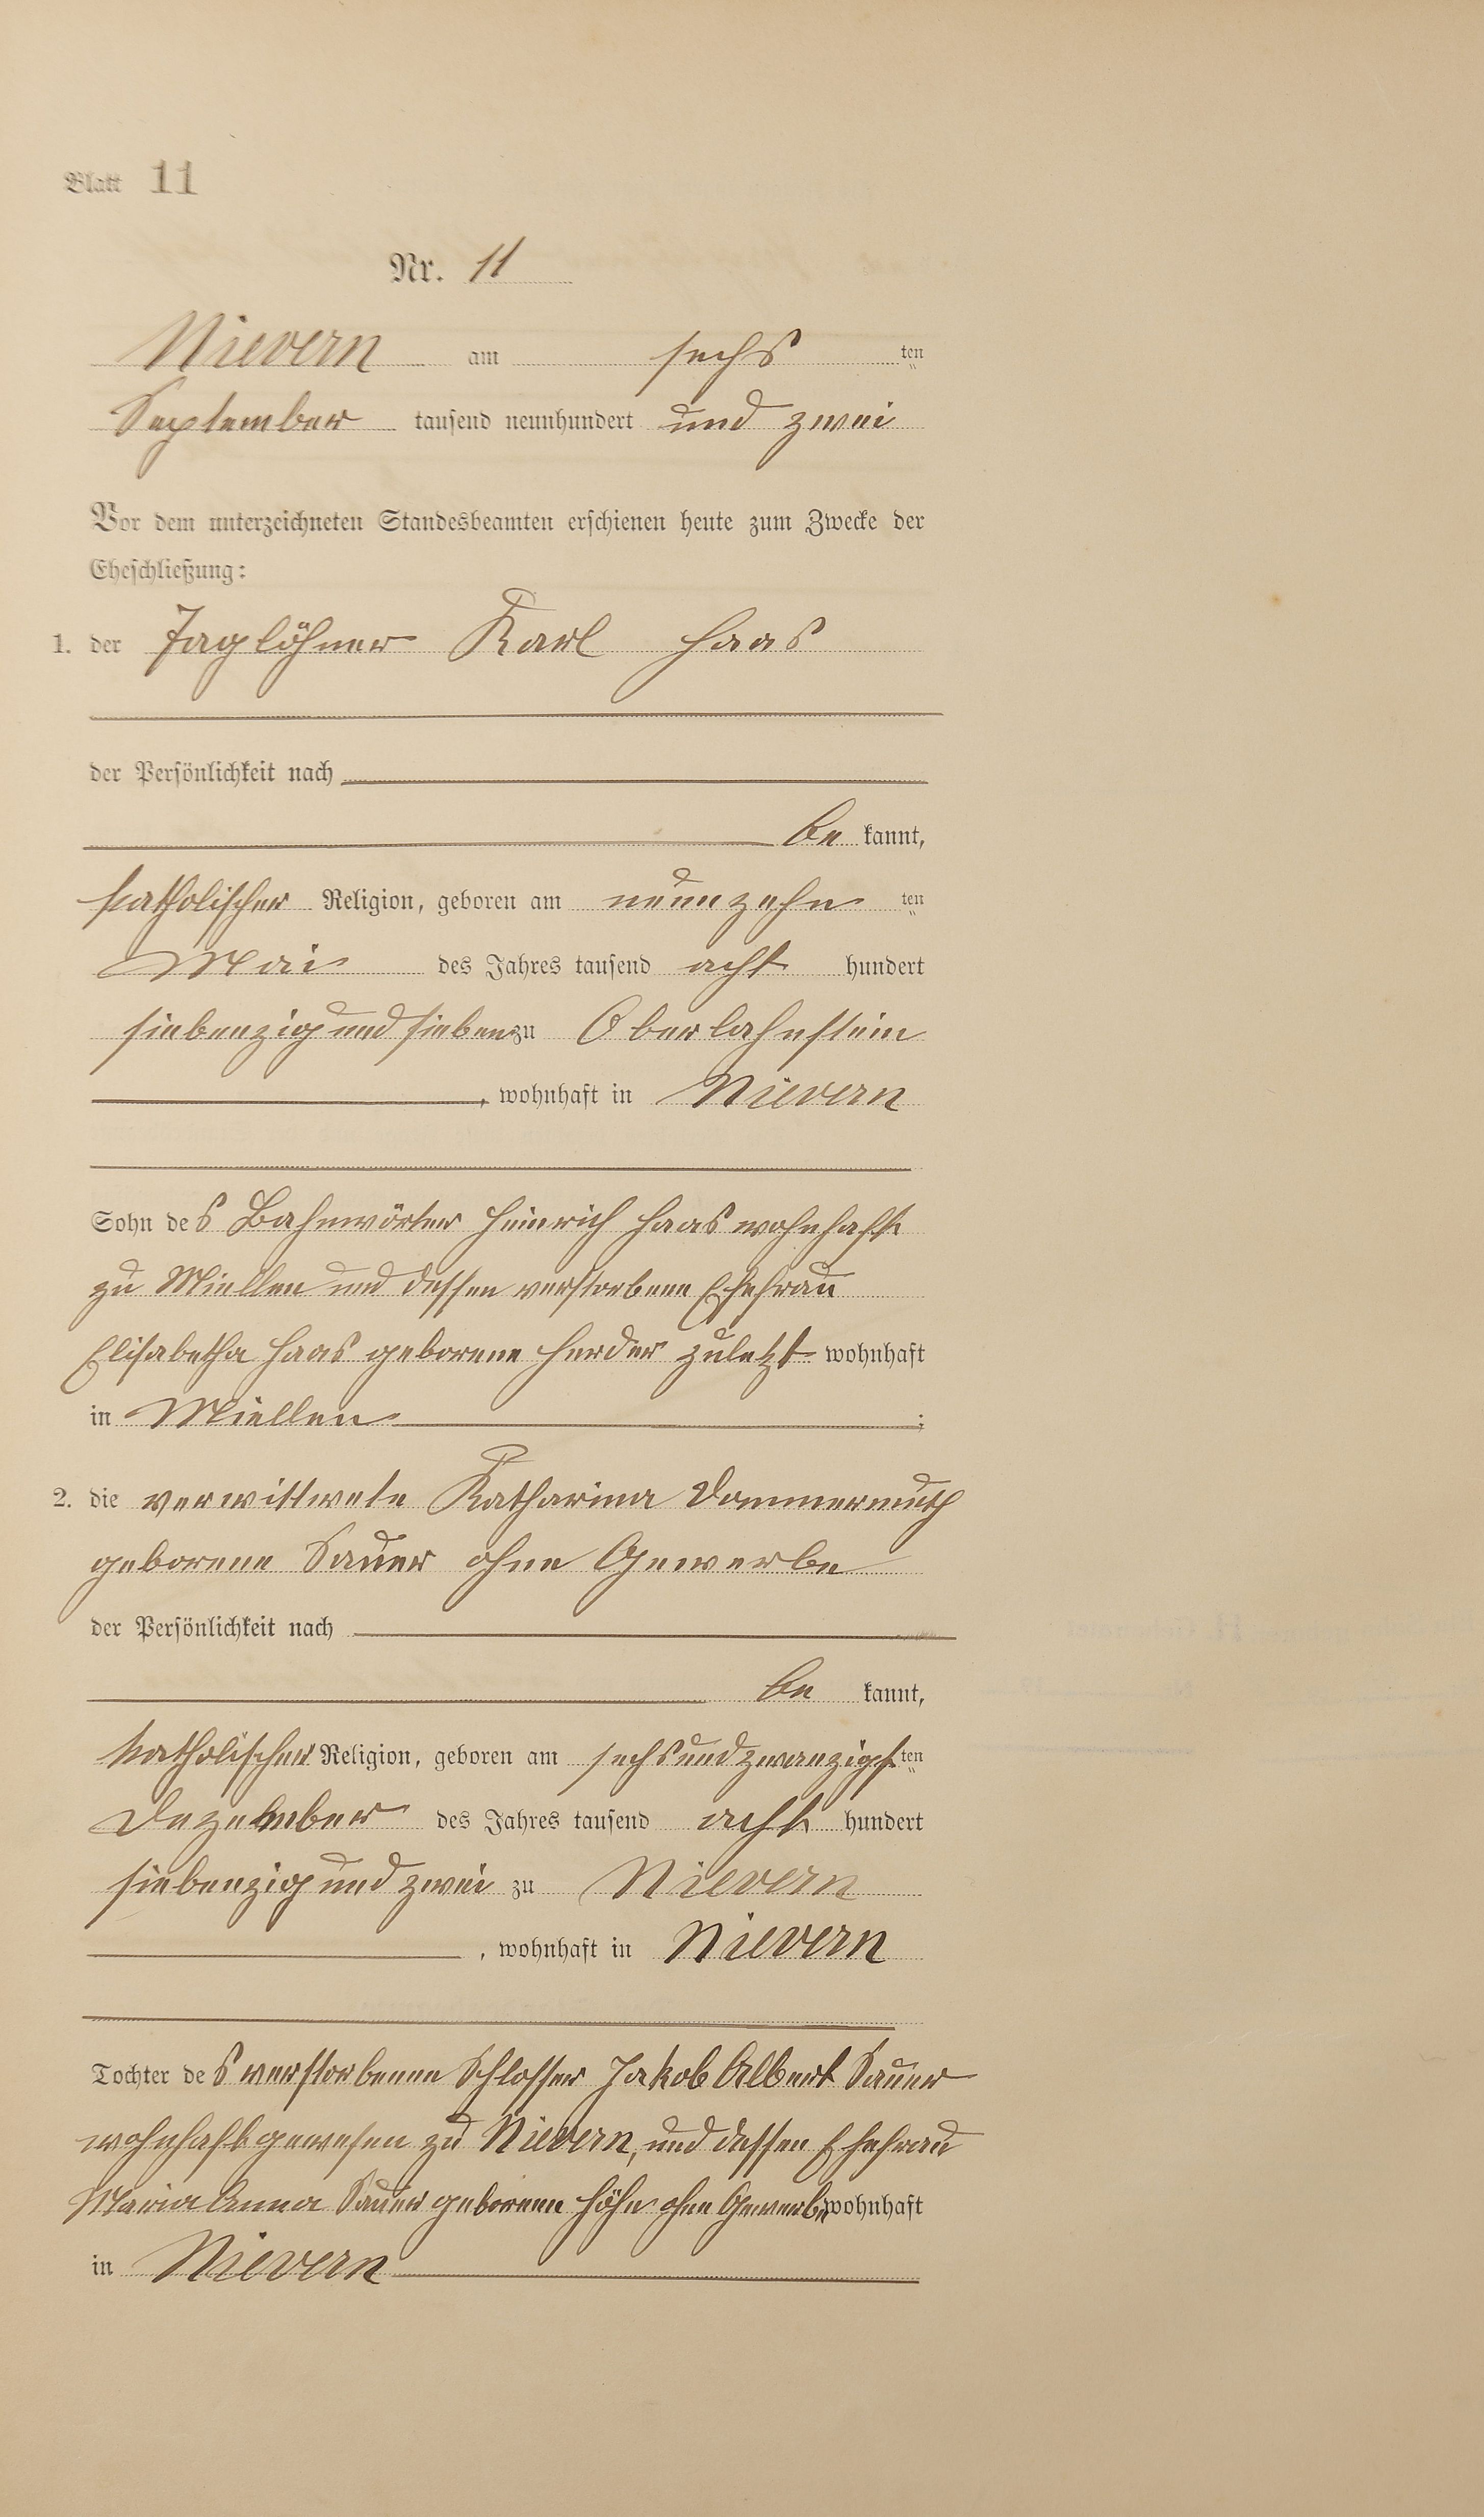 Blatt 11
Nr. 11
Nievern am sechs ten
September tausend neunhundert und zwei
Vor dem unterzeichneten Standesbeamten erschienen heute zum Zwecke der
Eheschließung:
1. der Taglöhner Karl Haas
der Persönlichkeit nach
be kannt,
katholischer Religion, geboren am neunzehn ten
Mai des Jahres tausend acht hundert
siebenzig und sieben zu Oberlahnstein
, wohnhaft in Nievern
Sohn des Bahnwörter Heinrich Haas wohnhaft
zu Miellen und dessen verstorbene Ehefrau
Elisabetha Haas geborene Herder zuletzt wohnhaft
in Miellen ;
2. die verwittwete Katharina Dommermuth
geborene Sauer ohne Gewerbe
der Persönlichkeit nach
be kannt,
katholischer Religion, geboren am sechsundzwanzigsten
Dezember des Jahres tausend acht hundert
siebenzig und zwei zu Nievern
, wohnhaft in Nievern
Tochter des verstorbenen Schlosser Jakob Albert Sauer
wohnhaft gewesen zu Nievern, und dessen Ehefrau
Maria Anna Sauer geborene Höhn ohne Gewerbe wohnhaft
in Nievern